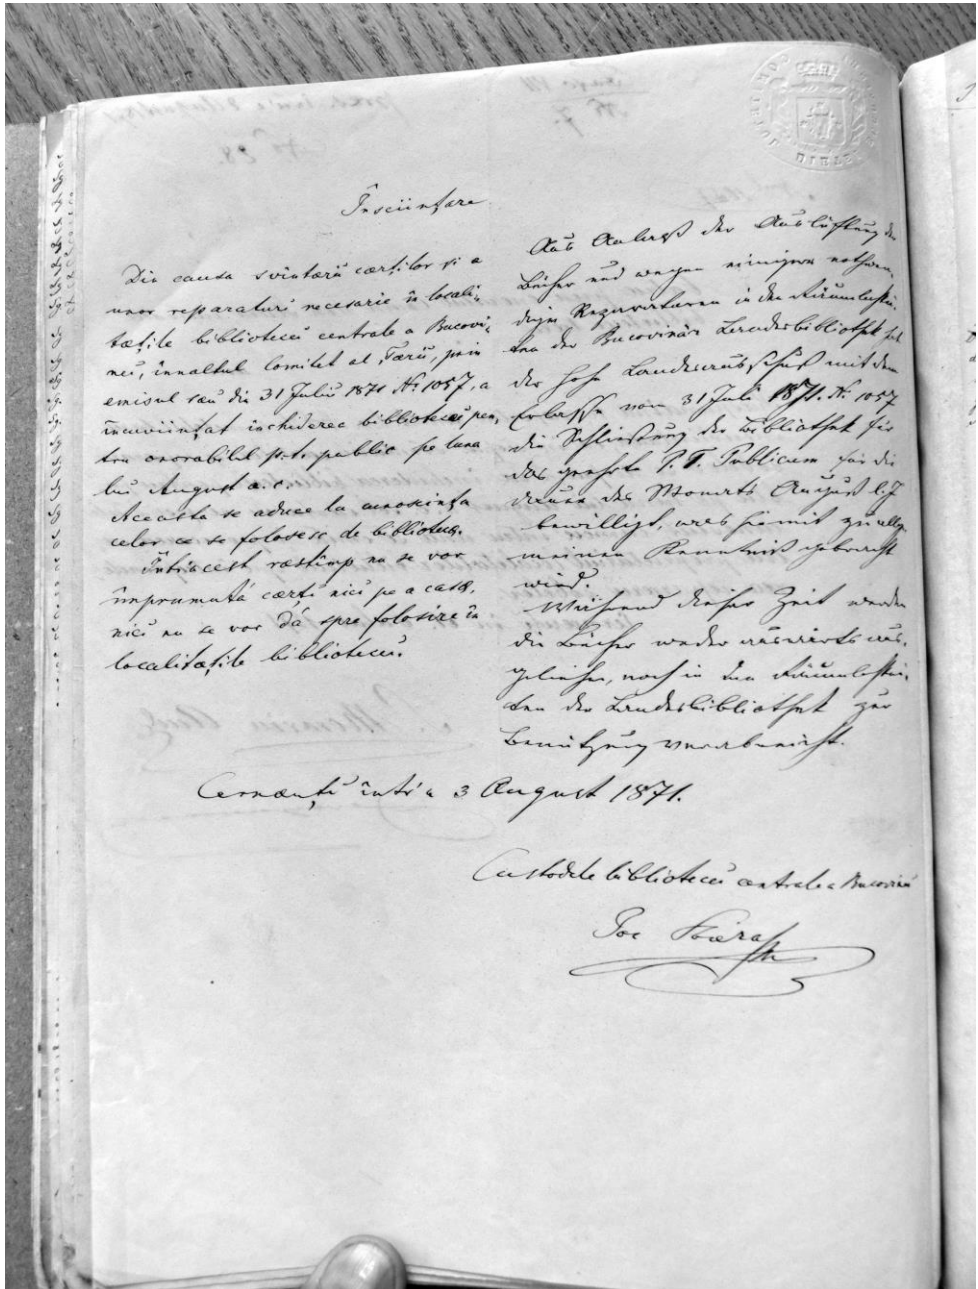 Însciințare
Din causa svintării cărților și a
unor reparaturi necesarie în locali-
tățile bibliotecii centrale a Bucovi-
nei, înnaltul Comitet al Țării, prin
emisul său din 31 Juliu 1871 Nr. 1057, a
încuviințat închiderea bibliotecii pen-
tru onorabilul p.t. public pe luna
lui August a. c.
Aceasta se aduce la cunoscința
celor ce se folosesc de bibliotecă.
Întriacest răstimp nu se vor
împrumuta cărți nici pe a casă,
nici nu se vor da spre folosire în
localitățile bibliotecii.
Aus Anlaß der Auslüftung der
Bücher und wegen einigen nothwen-
digen Reparaturen in den Räumlichkei-
ten der Bucovinär Landesbibliothek hat
der hohe Landesausschuß mit dem
Erlasse vom 31 Juli 1871. Nr. 1057
die Schließung der Bibliothek für
das geehrte P. T. Publicum für die
Dauer des Monats August l. J.
bewilligt, was hiemit zur allge-
meinen Kenntniß gebracht
wird.
Während dieser Zeit werden
die Bücher weder auswärts aus-
geliehen, noch in den Räumlichkei-
ten der Landesbibliothek zur
Benützung verabreicht.
Cernăuți într'a 3 August 1871.
Custodele bibliotecii centrale a Bucovinei